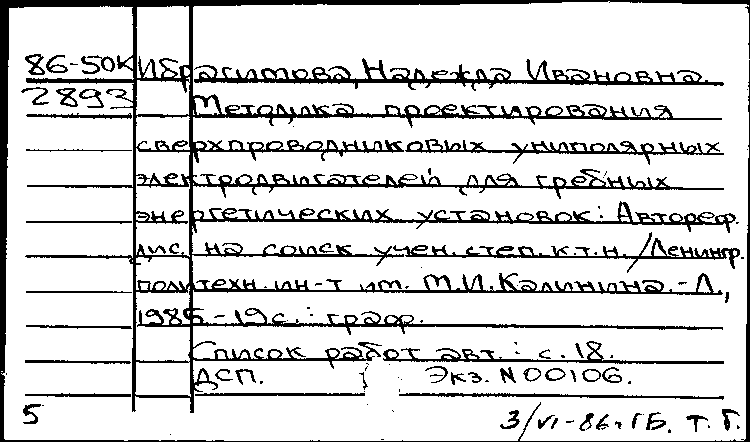 86-50к Ибрагимова, Надежда Ивановна.
2893 Методика проектирования
сверхпроводниковых униполярных
электродвигателей для гребных
энергетических установок: Автореф.
дис. на соиск. учен. степ. к.т.н. /Ленингр.
политехн. ин-т им. М.И. Калинина.-Л.,
1985.-19с.: граф.
Список работ авт.: с. 18.
ДСП. Экз. N 00106.
5 3/VI-86г. ГБ. Т. Г.